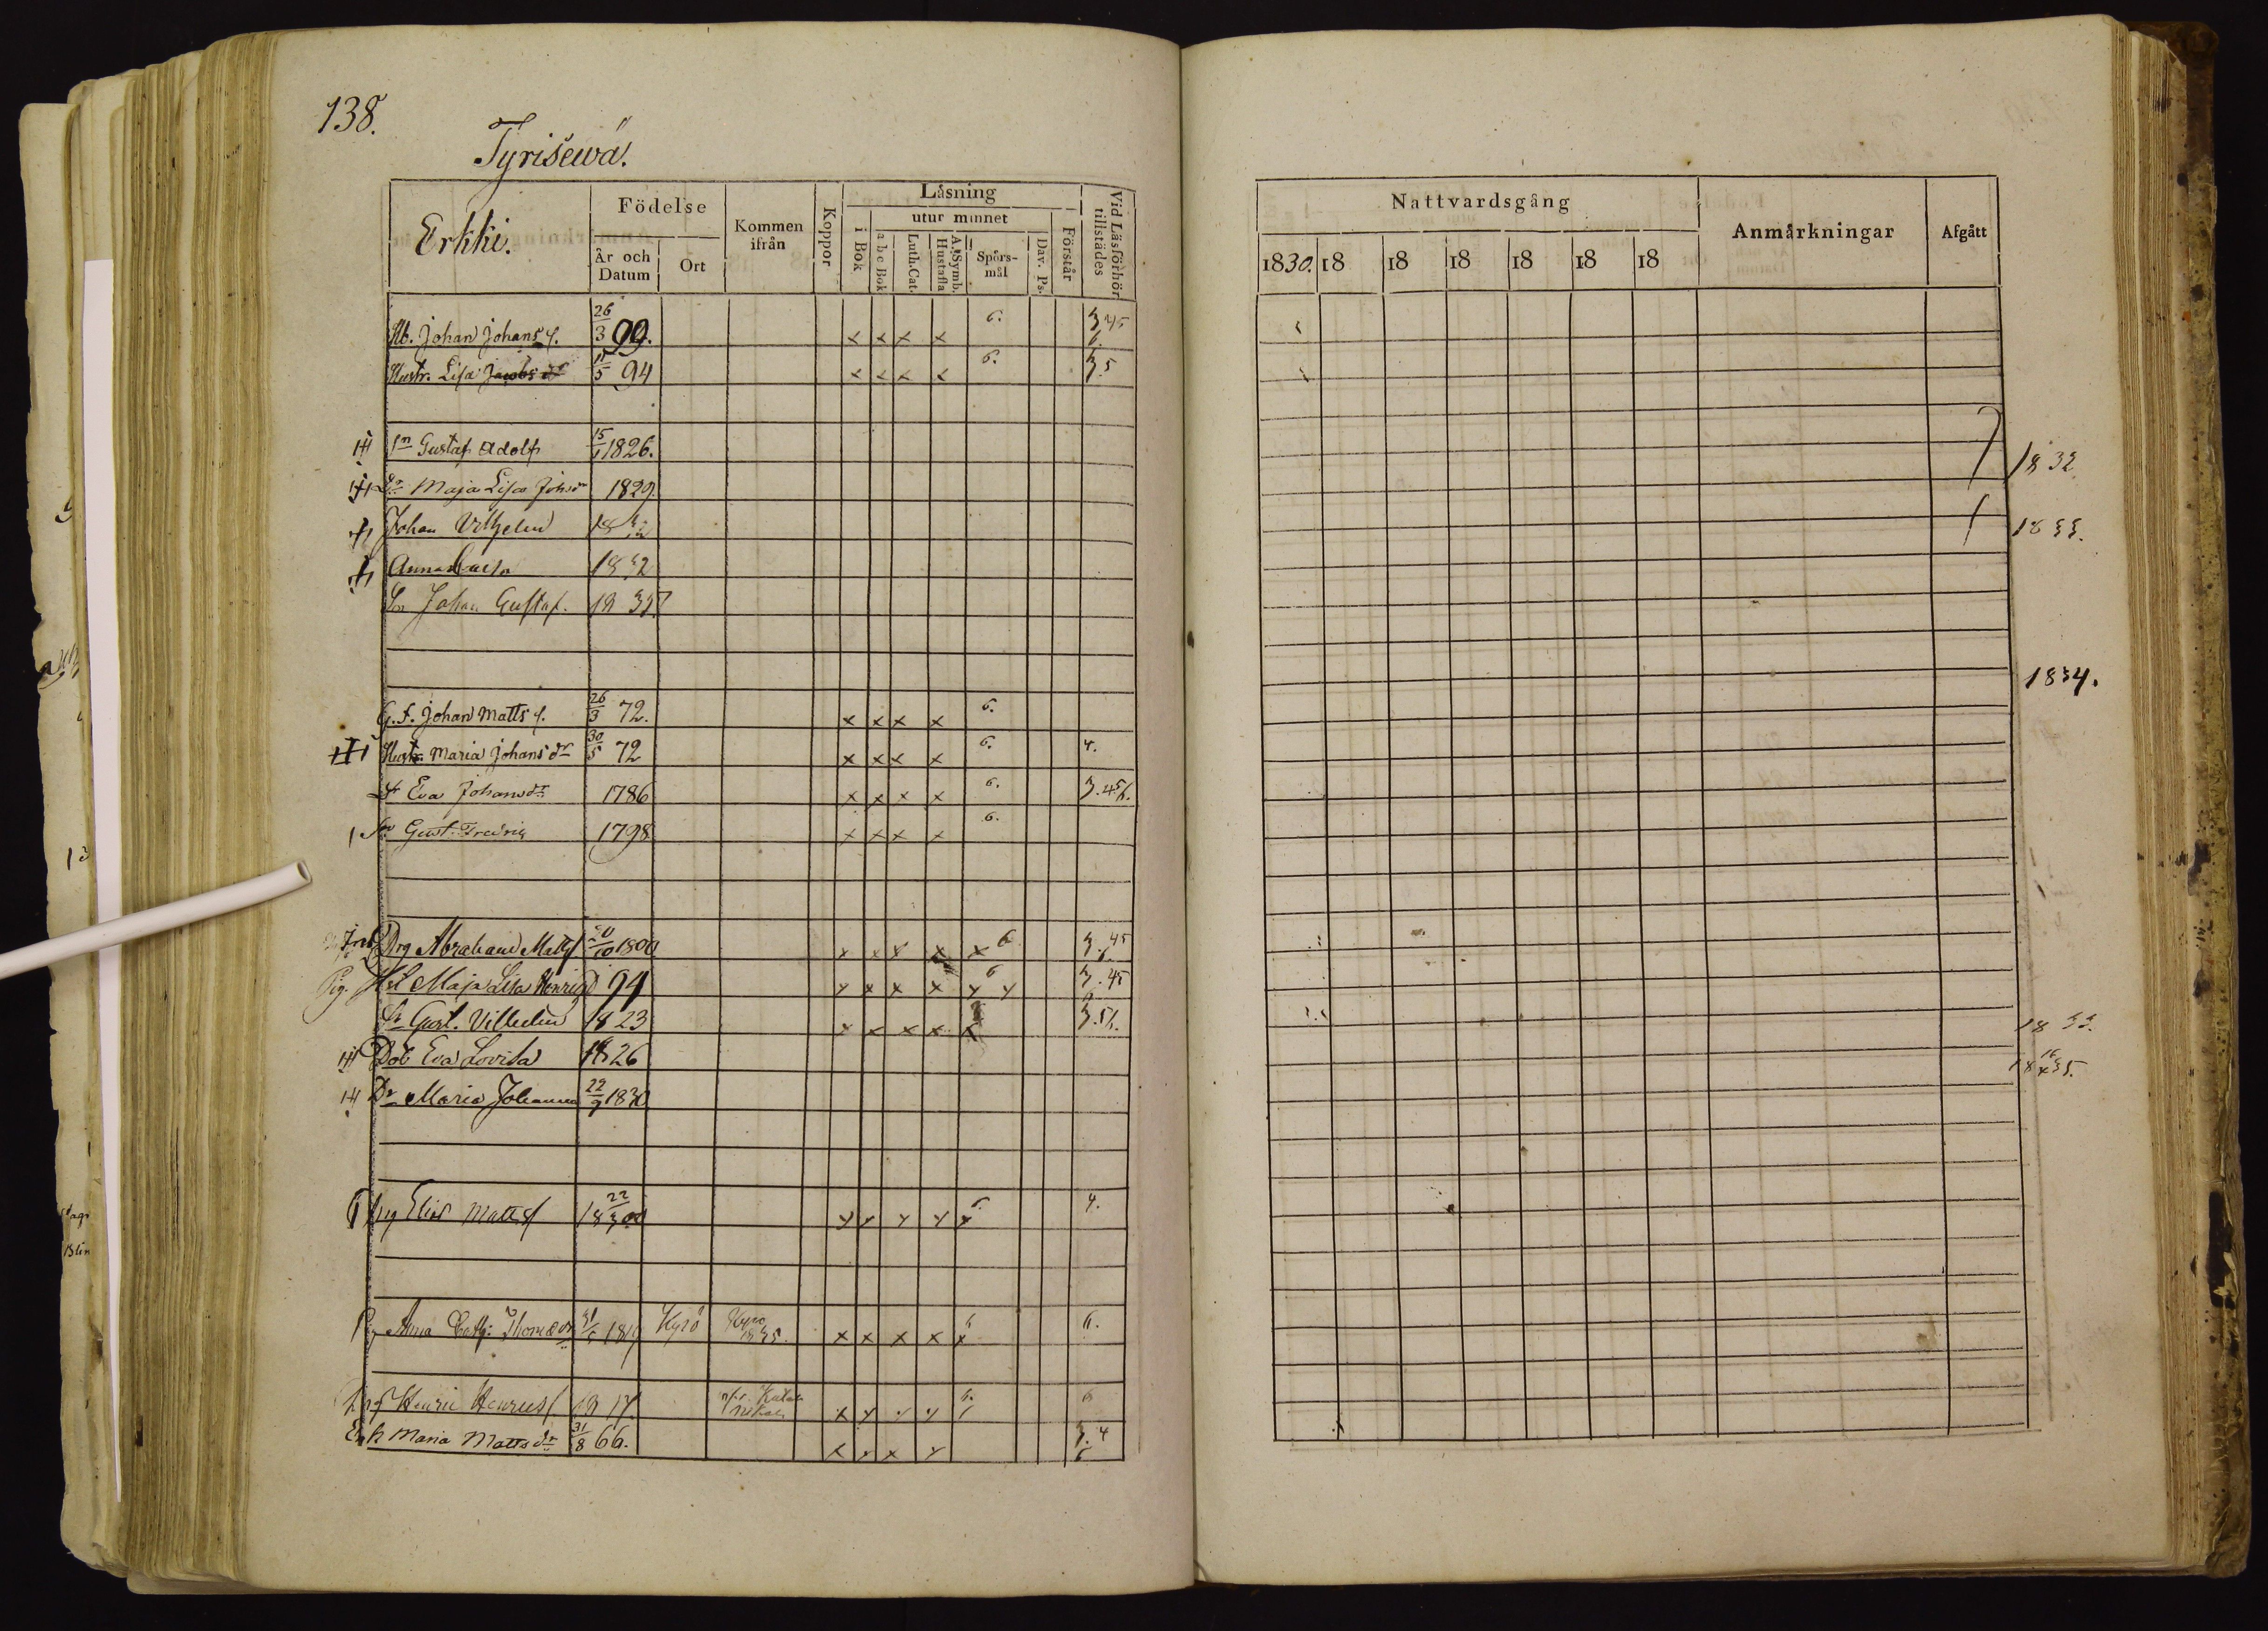 138.
Tyrisewä.
Erkki.
Födelse
År och Datum
Ort
Kommen ifrån
Koppor
Läsning
i Bok
utur minnet
a b c Bok
Luth. Cat.
A. Symb. Hustafla
Spörsmål
Dav. Ps.
Förstår
Vid Läsförhör tillstädes
Nattvardsgång
1830. 18 18 18 18 18 18
Anmärkningar
Afgått
Johan Johans f. 26/3 99. x x x x 6. 3 45 6.
Hustr. Lisa Jacobs dr 5 94 x x x x 6. 3.5
Sn Gustaf Adolf 15/1 1826.
Dr Maja Lisa Johsdr 1829. 1832
Johan Vilhelm 1832 1833.
Anna 1832
Sn Johan Gustaf. 1835
1834.
G. f. Johan Matts f. 26/3 72. x x x x 6.
Hustr. Maria Johans dr 30/5 72 x x x x 6. 4.
Eva Johansdr 1786 x x x x 6. 3.45 6.
Sn Gust. Fredric 1798 x x x x 6.
Drg Abraham Matts f 20/10 1800 x x x x x 6 3. 45
Pig. Maja Lisa Henrics d 94 x x x x x x 6 3. 45
Sn Gust. Vilhelm 1823 x x x x x 3.5 6.
Dot Eva Lovisa 1826 1833.
Dr Maria Johanna 22/9 1830 1835.
Drg Elias Matts f 22/3 1800 x x x x x 6 4.
Pig Anna Cath: Thomædr Kyrö Kyrö 1835. x x x x x 6 6.
Henric Henrics f. 18 17. x x x x 6. 6
Enk Maria Matts dr 31/8 66. x x x x 3. 4 6